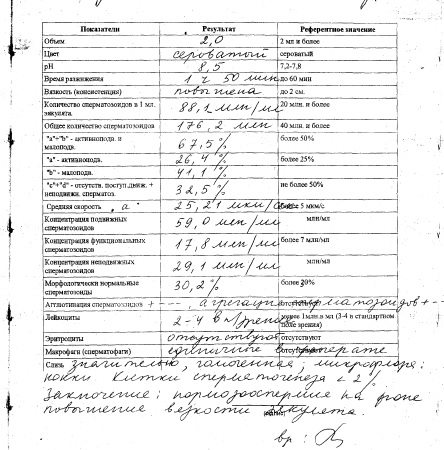 Показатели Результат Референтное значение
Объем 2,0 2 мл и более
Цвет сероватый сероватый
pH 8,5 7,2-7,8
Время разжижения 1 ч 50 мин до 60 мин
Вязкость (консистенция) повышена до 2 см.
Количество сперматозоидов в 1 мл. эякулята. 88,1 млн/мл 20 млн. и более
Общее количество сперматозоидов 176,2 млн 40 млн. и более
"a"+"b" - активноподв. и малоподв. 67,5% более 50%
"a" - активноподв. 26,4% более 25%
"b" - малоподв. 41,1%
"c"+"d" - отсутств. поступ.движ. + неподвижн. сперматоз. 32,5% не более 50%
Средняя скорость "a" 25,21 мкм/сек более 5 мкм/с
Концентрация подвижных сперматозоидов 59,0 млн/мл млн/мл
Концентрация функциональных сперматозоидов 17,8 млн/мл более 7 млн/мл
Концентрация неподвижных сперматозоидов 29,1 млн/мл млн/мл
Морфологически нормальные сперматозоиды 30,2% более 20%
Агглютинация сперматозоидов +---, агрегация сперматозоидов +-- отсутствует
Лейкоциты 2-4 в п/зрения менее 1млн.в мл (3-4 в стандартном поле зрения)
Эритроциты отсутствуют отсутствуют
Макрофаги (сперматофаги) единичные в препарате
Слизь значительно, микрофлора:
клетки сперматогенеза < 2%
Заключение: нормозооспермия на фоне
повышения вязкости эякулята.
вр: